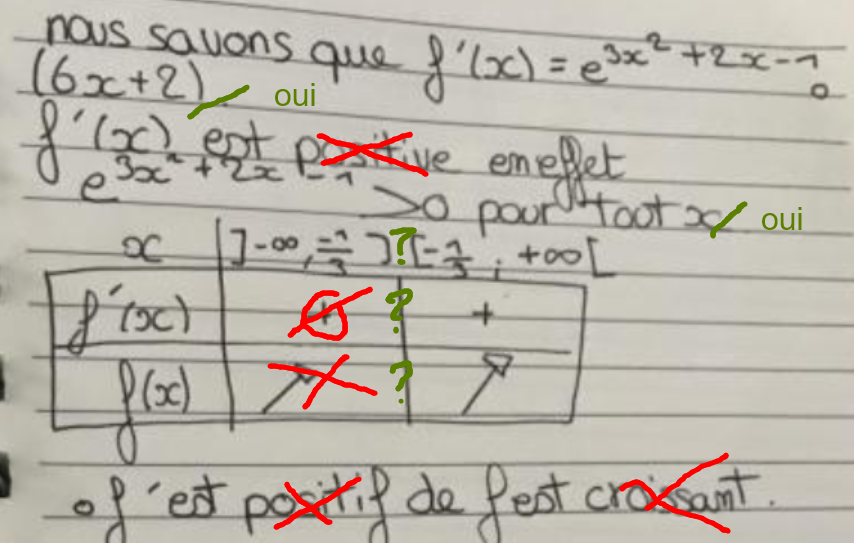 nous savons que f'(x) = e^3x²+2x-1.
(6x+2) oui
f'(x) est positive en effet
e^3x²+2x-1 >0 pour toot x oui
x ]-∞, -1/3 ] ? [-1/3 ; +∞[
f'(x) + ? +
f(x) ?
• f' est positif de f est croissant.